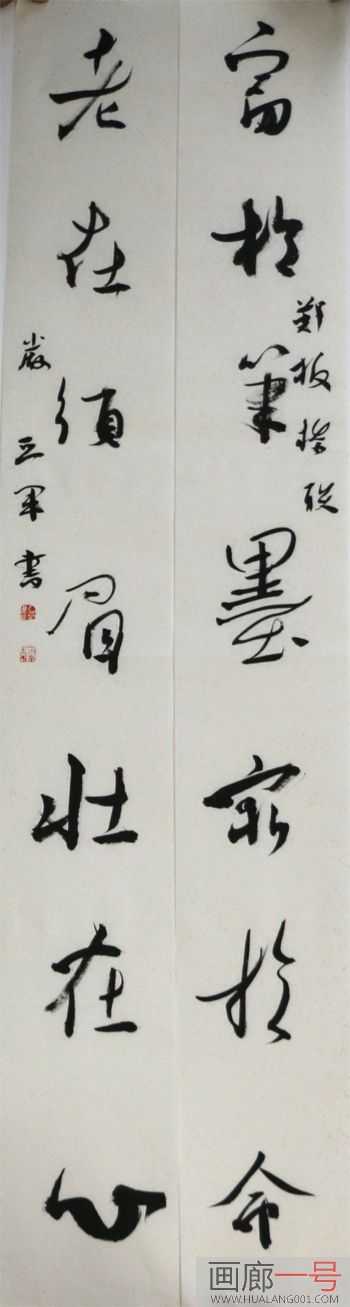 富於筆墨窮於命
鄭板橋聯
老在須眉壯在心
嚴亞軍書
画廊一号
WWW.HUALANG001.COM